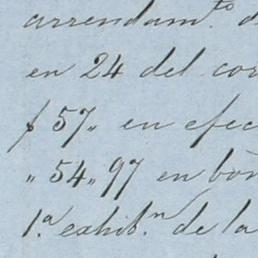 arrendam.to d
en 24 del cor
$ 57,, en efec
,, 54,, 97 en bon
1.a exhib.n de la